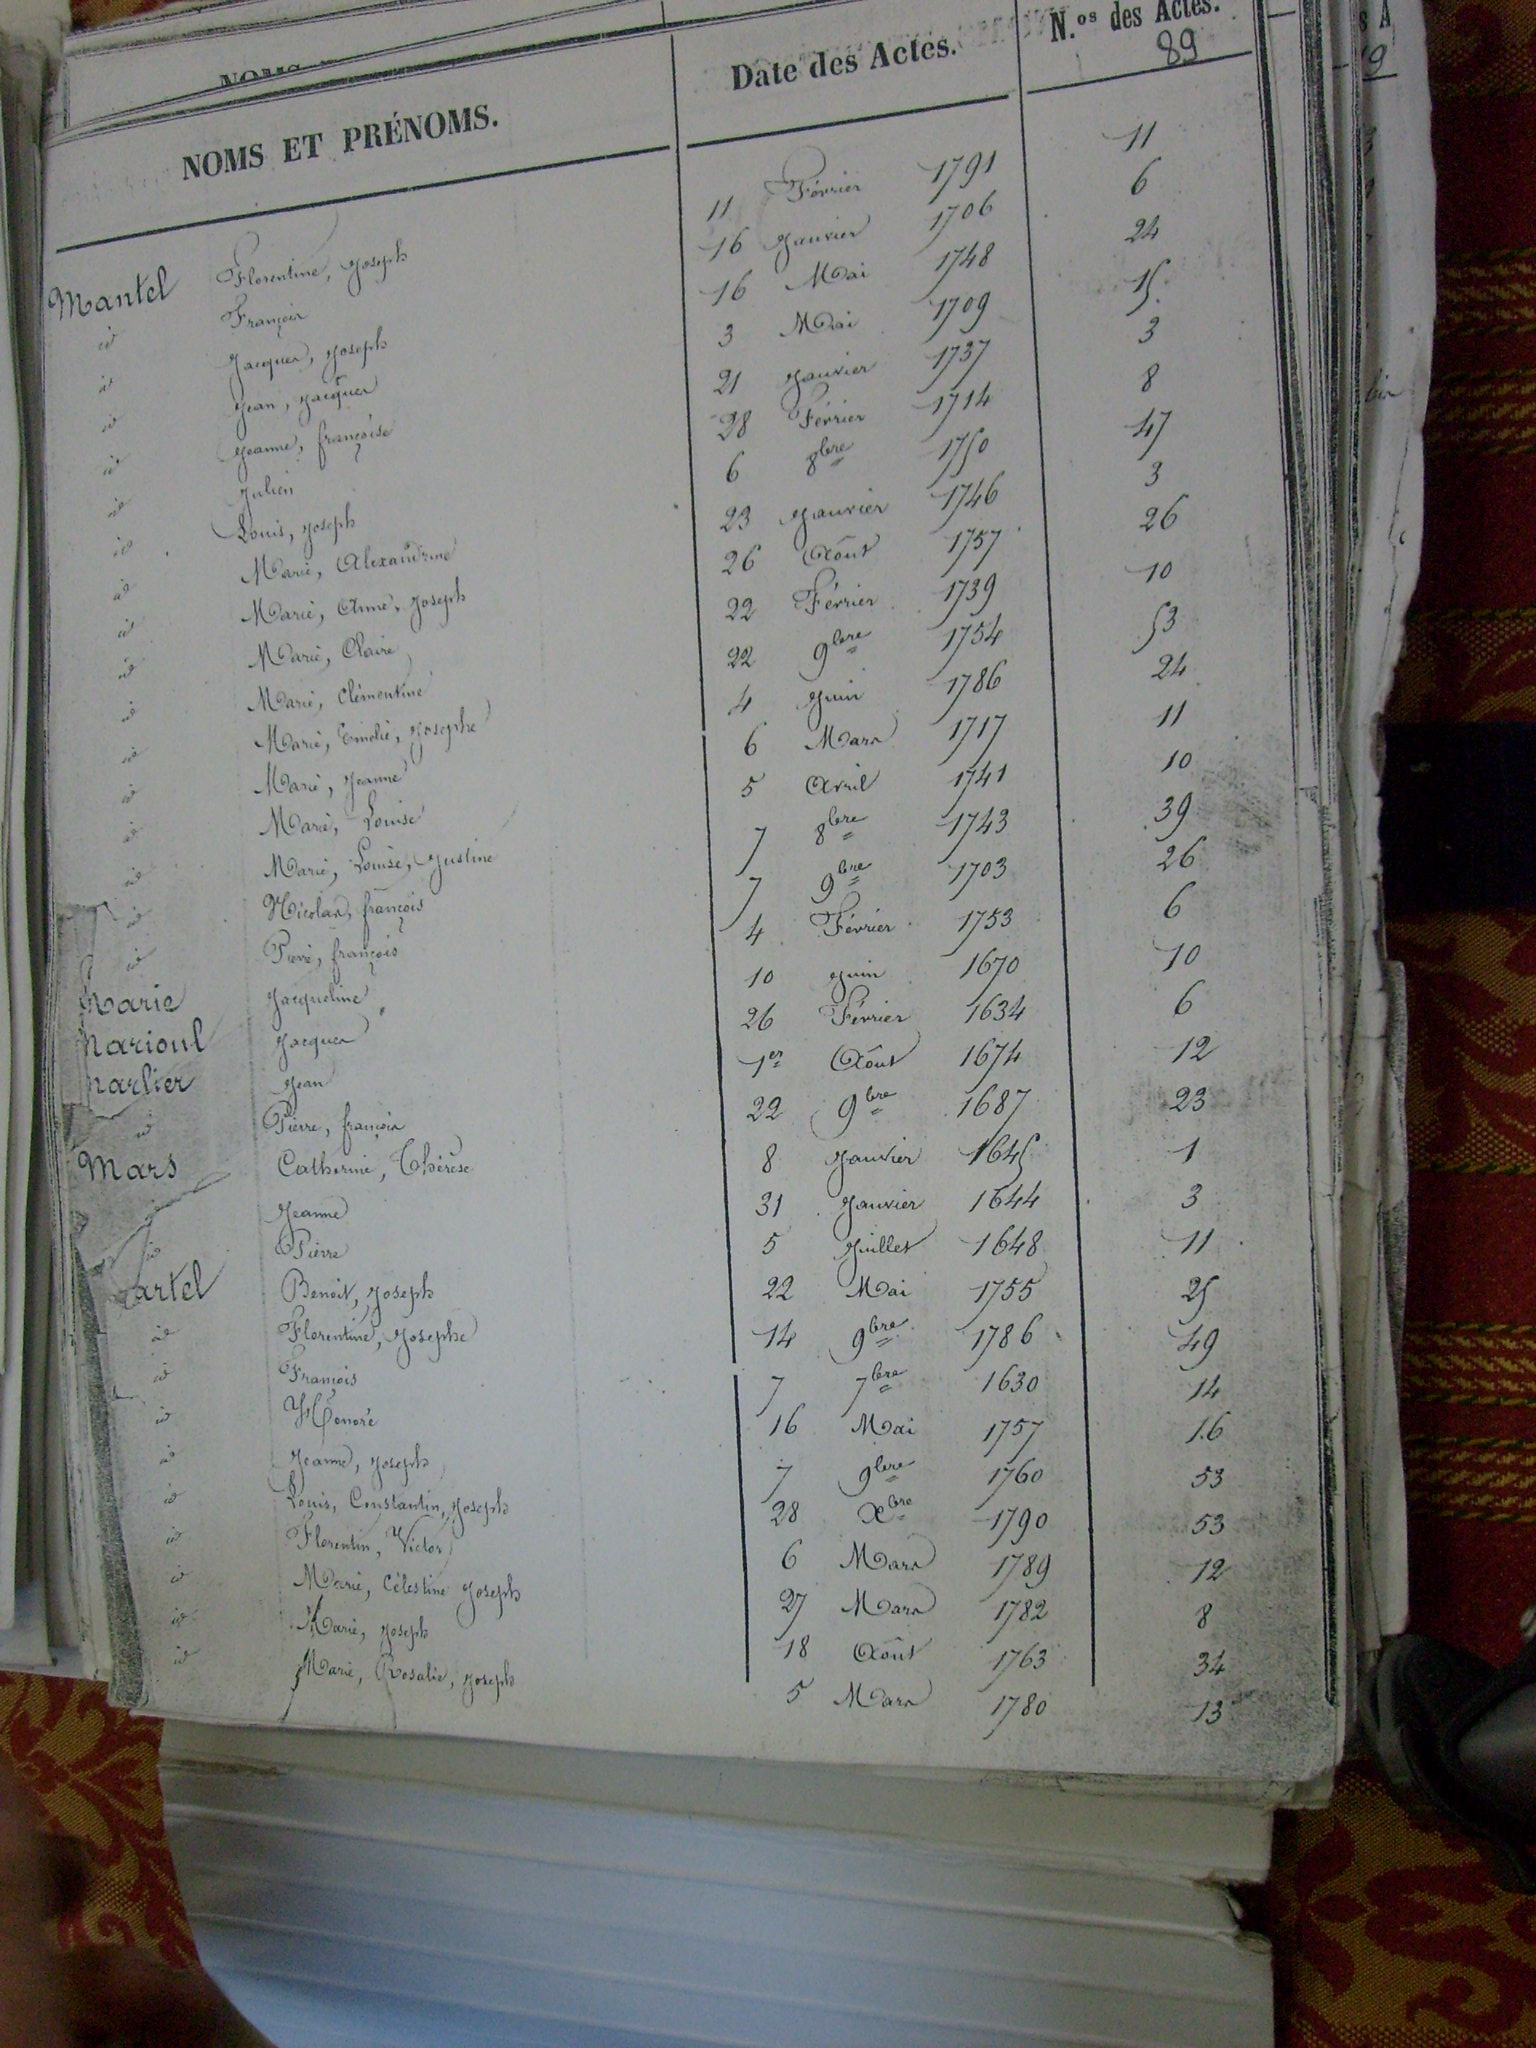 NOMS ET PRÉNOMS. Date des Actes. N.os des Actes.
89
Mantel Florentine, Joseph 11 Février 1791 11
id François 16 Janvier 1706 6
id Jacques, Joseph 16 Mai 1748 24
id Jean, Jacques 3 Mai 1709 15
id Jeanne, françoise 21 Janvier 1737 3
id Julien 28 Février 1714 8
id Louis, Joseph 6 8bre 1750 47
id Marie, Alexandrine 23 Janvier 1746 3
id Marie, Anne, Joseph 26 Août 1757 26
id Marie, Claire 22 Février 1739 10
id Marie, Clémentine 22 9bre 1754 53
id Marie, Emélie, Josephe 4 Juin 1786 24
id Marie, Jeanne 6 Mars 1717 11
id Marie, Louise 5 Avril 1741 10
id Marie, Louise, Justine 7 8bre 1743 39
id Nicolas, françois 7 9bre 1703 26
id Pierre, françois 4 Février 1753 6
Marie Jacqueline 10 Juin 1670 10
Marioul Jacques 26 Février 1634 6
Marlier Jean 1er Août 1674 12
id Pierre, françois 22 9bre 1687 23
Mars Catherine, Thérèse 8 Janvier 1645 1
Jeanne 31 Janvier 1644 3
id Pierre 5 Juillet 1648 11
artel Benoit, Joseph 22 Mai 1755 25
id Florentine, Josephe 14 9bre 1786 49
id François 7 7bre 1630 14
id Honoré 16 Mai 1757 16
id Jeanne, Joseph 7 9bre 1760 53
id Louis, Constantin, Joseph 28 Xbre 1790 53
id Florentin, Victor 6 Mars 1789 12
id Marie, Célestine Joseph 27 Mars 1782 8
id Marie, Joseph 18 Août 1763 34
id Marie, Rosalie, Joseph 5 Mars 1780 13